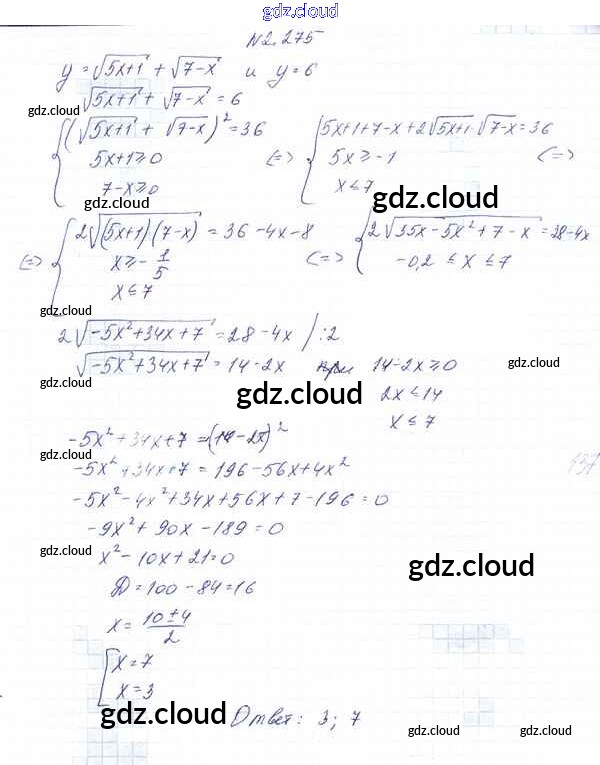 gdz.cloud
N2.275
y = √(5x+1) + √(7-x) и y = 6
√(5x+1) + √(7-x) = 6
gdz.cloud
{ (√(5x+1) + √(7-x))² = 36
5x+1 ≥ 0
7-x ≥ 0
(=>
{ 5x+1+7-x+2√(5x+1)·√(7-x) = 36
5x ≥ -1
x ≤ 7
(=>
gdz.cloud
gdz.cloud
(=> { 2√((5x+1)(7-x)) = 36-4x-8
x ≥ -1/5
x ≤ 7
(=> { 2√(35x-5x²+7-x) = 28-4x
-0,2 ≤ x ≤ 7
gdz.cloud
2√(-5x²+34x+7) = 28-4x /:2
√(-5x²+34x+7) = 14-2x при 14-2x ≥ 0
gdz.cloud
gdz.cloud
gdz.cloud
2x ≤ 14
x ≤ 7
-5x²+34x+7 = (14-2x)²
gdz.cloud
-5x²+34x+7 = 196-56x+4x²
137
-5x²-4x²+34x+56x+7-196 = 0
-9x²+90x-189 = 0
gdz.cloud
x²-10x+21 = 0
gdz.cloud
D = 100-84 = 16
x = (10±4)/2
gdz.cloud
[ x = 7
x = 3
gdz.cloud
Ответ: 3; 7
gdz.cloud